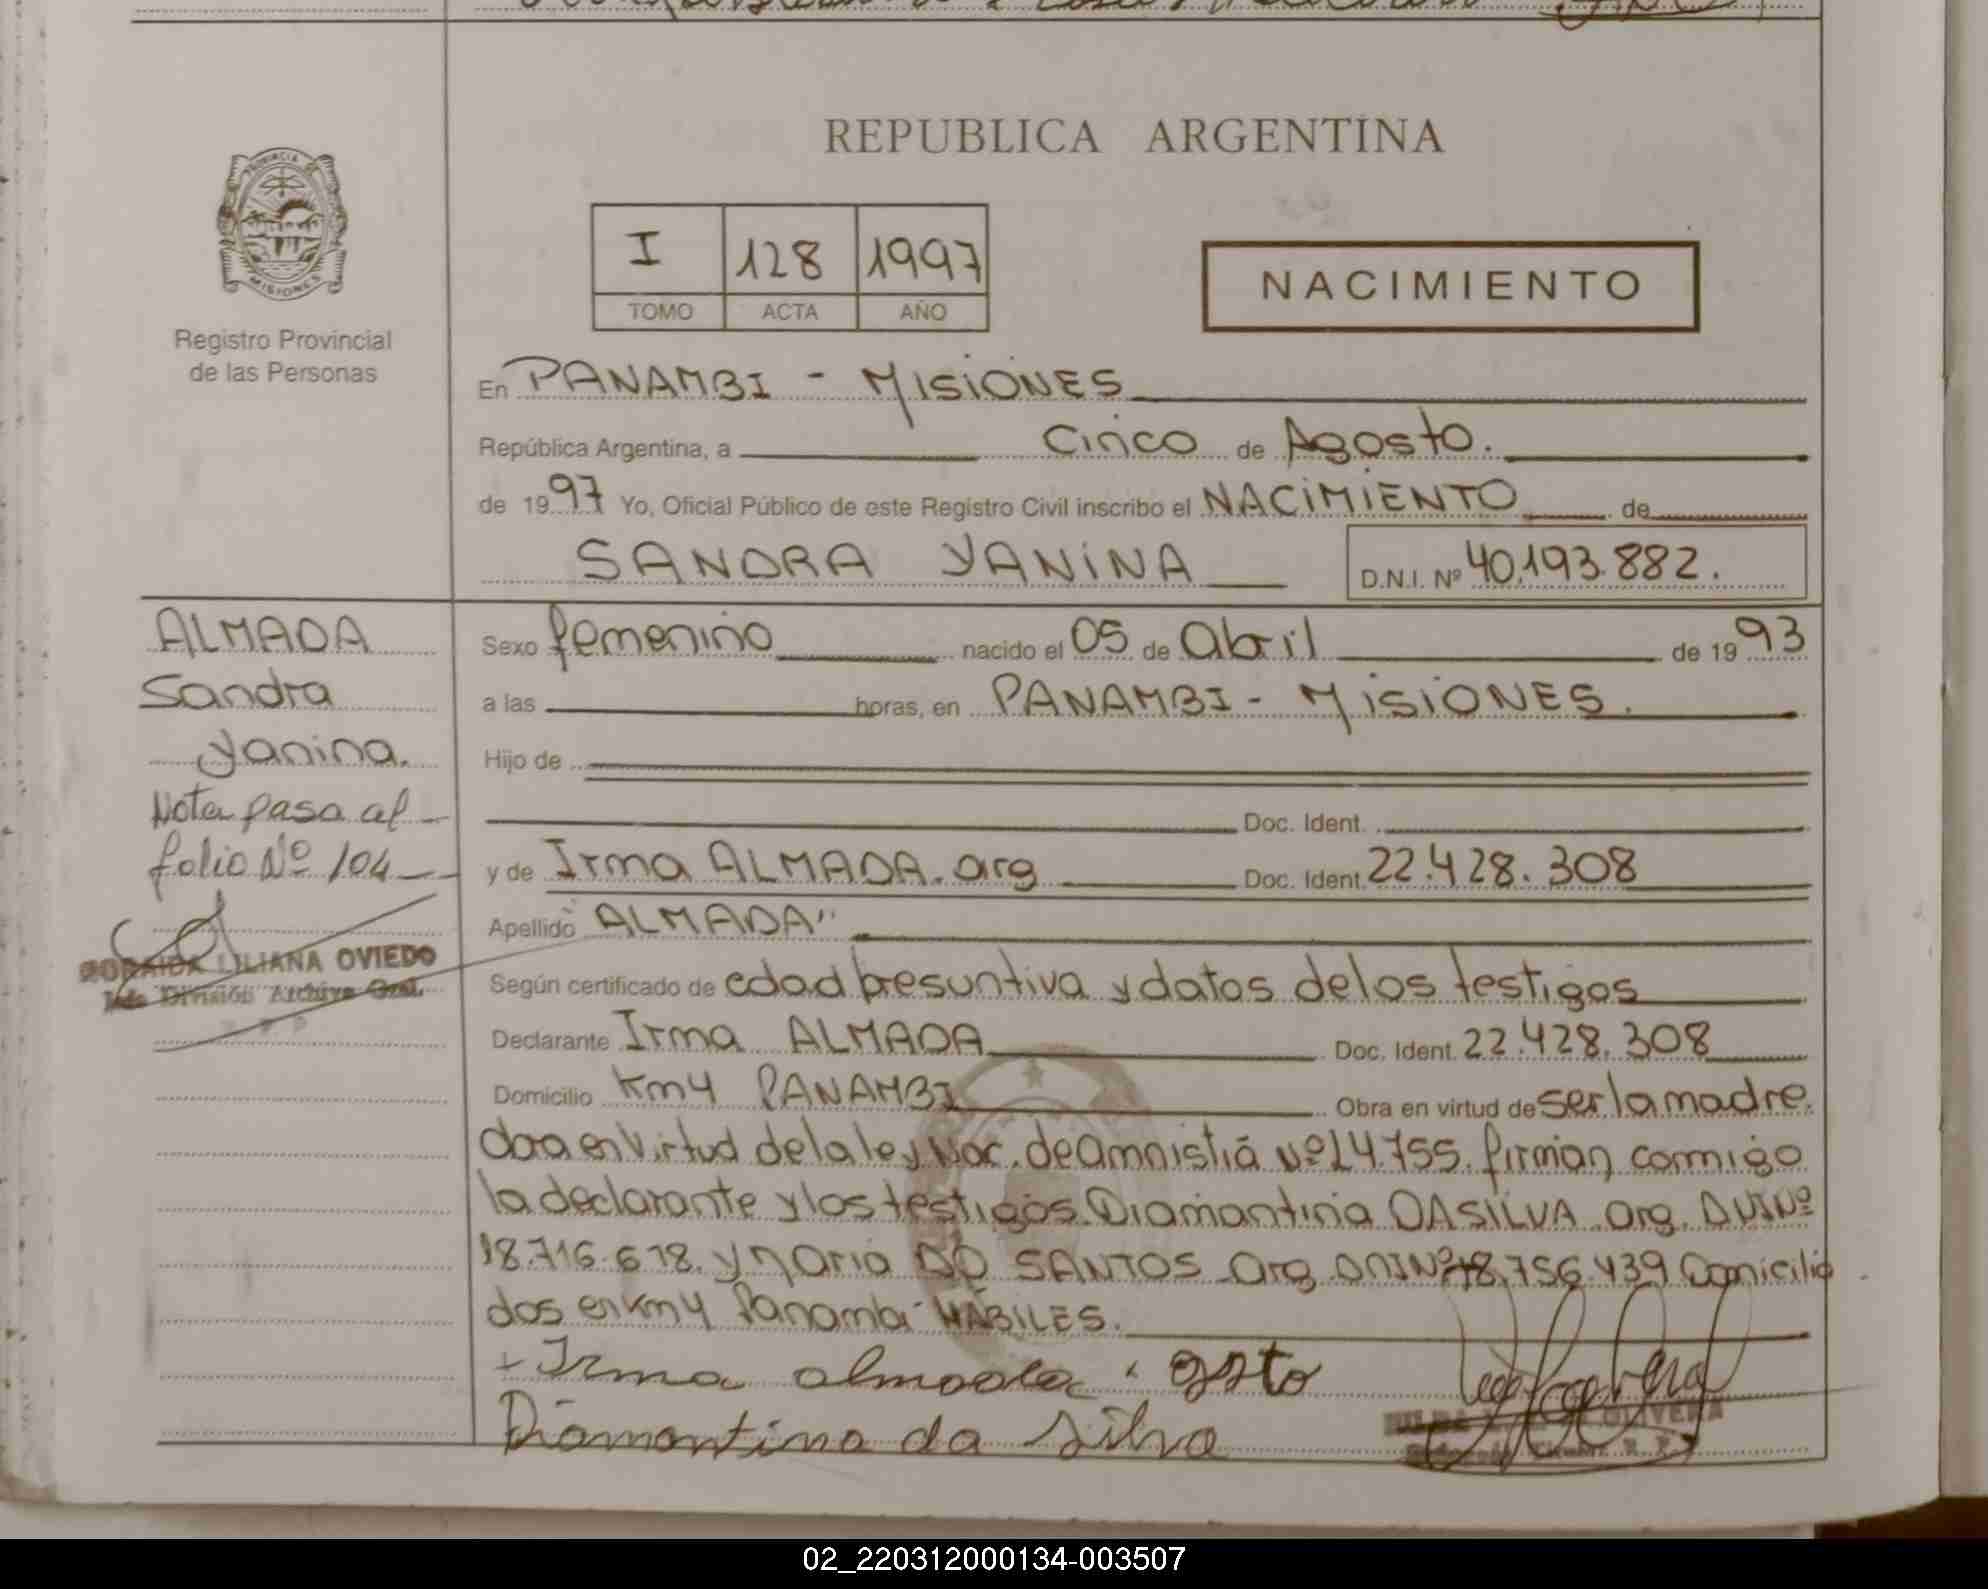 REPUBLICA ARGENTINA
PROVINCIA
MISIONES
Registro Provincial
de las Personas
I 128 1997
TOMO ACTA AÑO
NACIMIENTO
En PANAMBI - MISIONES
República Argentina, a Cinco de Agosto.
de 1997 Yo, Oficial Público de este Registro Civil inscribo el NACIMIENTO de
SANDRA YANINA D.N.I. Nº 40.193.882.
ALMADA
Sandra
Yanina.
Nota pasa al
folio Nº 104
LILIANA OVIEDO
División Archivo Gral.
Sexo femenino nacido el 05 de abril de 1993
a las horas, en PANAMBI - MISIONES.
Hijo de
Doc. Ident.
y de Irma ALMADA. arg Doc. Ident. 22.428.308
Apellido "ALMADA"
Según certificado de edad presuntiva y datos de los testigos
Declarante Irma ALMADA Doc. Ident. 22.428.308
Domicilio Km 4 PANAMBI Obra en virtud de ser la madre.
Obra en Virtud de la ley Nac. de Amnistiá Nº 24.755. firman conmigo
la declarante y los testigos. Diamantina DA SILVA arg. DNI Nº
18.716.678. y Maria DO SANTOS arg. DNI Nº 18.756.439 Domicilia
dos en Km 4 Panambi HÁBILES.
+ Irma almada
Diamontina da Silva
OLIVERA
02_220312000134-003507